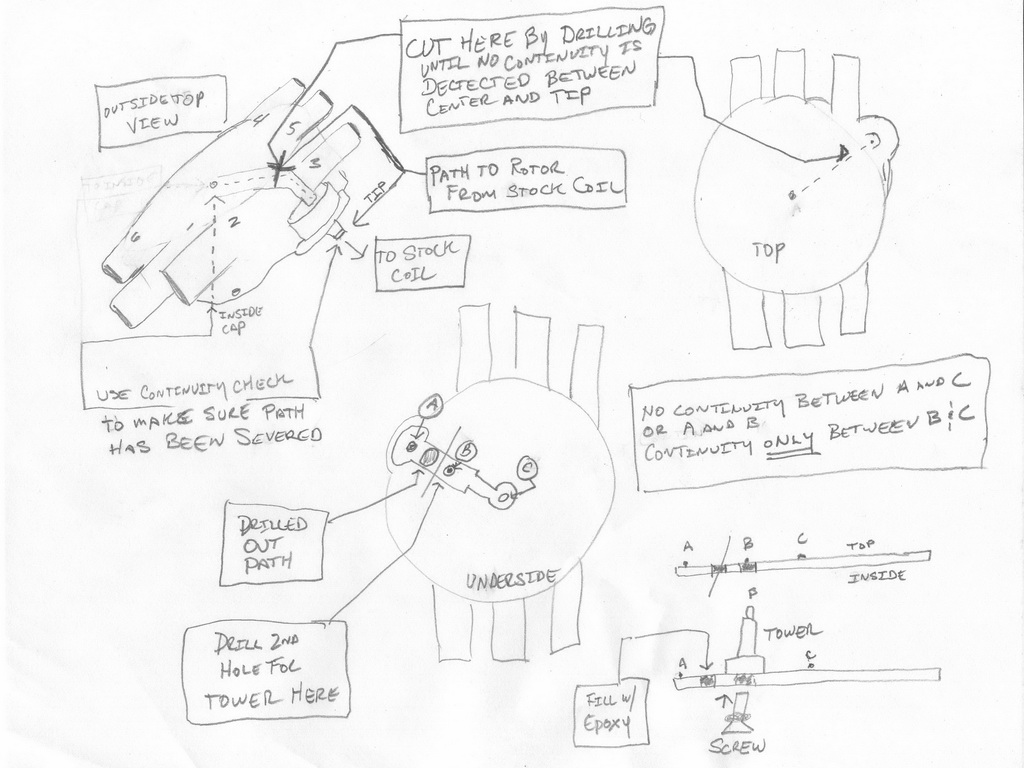 CUT HERE BY DRILLING
UNTIL NO CONTINUITY IS
DECTECTED BETWEEN
CENTER AND TIP
OUTSIDE TOP
VIEW
4
5
3
2
6
TIP
PATH TO ROTOR
FROM STOCK COIL
TO STOCK
COIL
INSIDE
CAP
USE CONTINUITY CHECK
to MAKE SURE PATH
HAS BEEN SEVERED
TOP
NO CONTINUITY BETWEEN A AND C
OR A AND B
CONTINUITY ONLY BETWEEN B & C
A
B
C
UNDERSIDE
DRILLED
OUT
PATH
DRILL 2ND
HOLE FOR
TOWER HERE
A
B
C
TOP
INSIDE
TOWER
A
C
FILL W/
EPOXY
SCREW